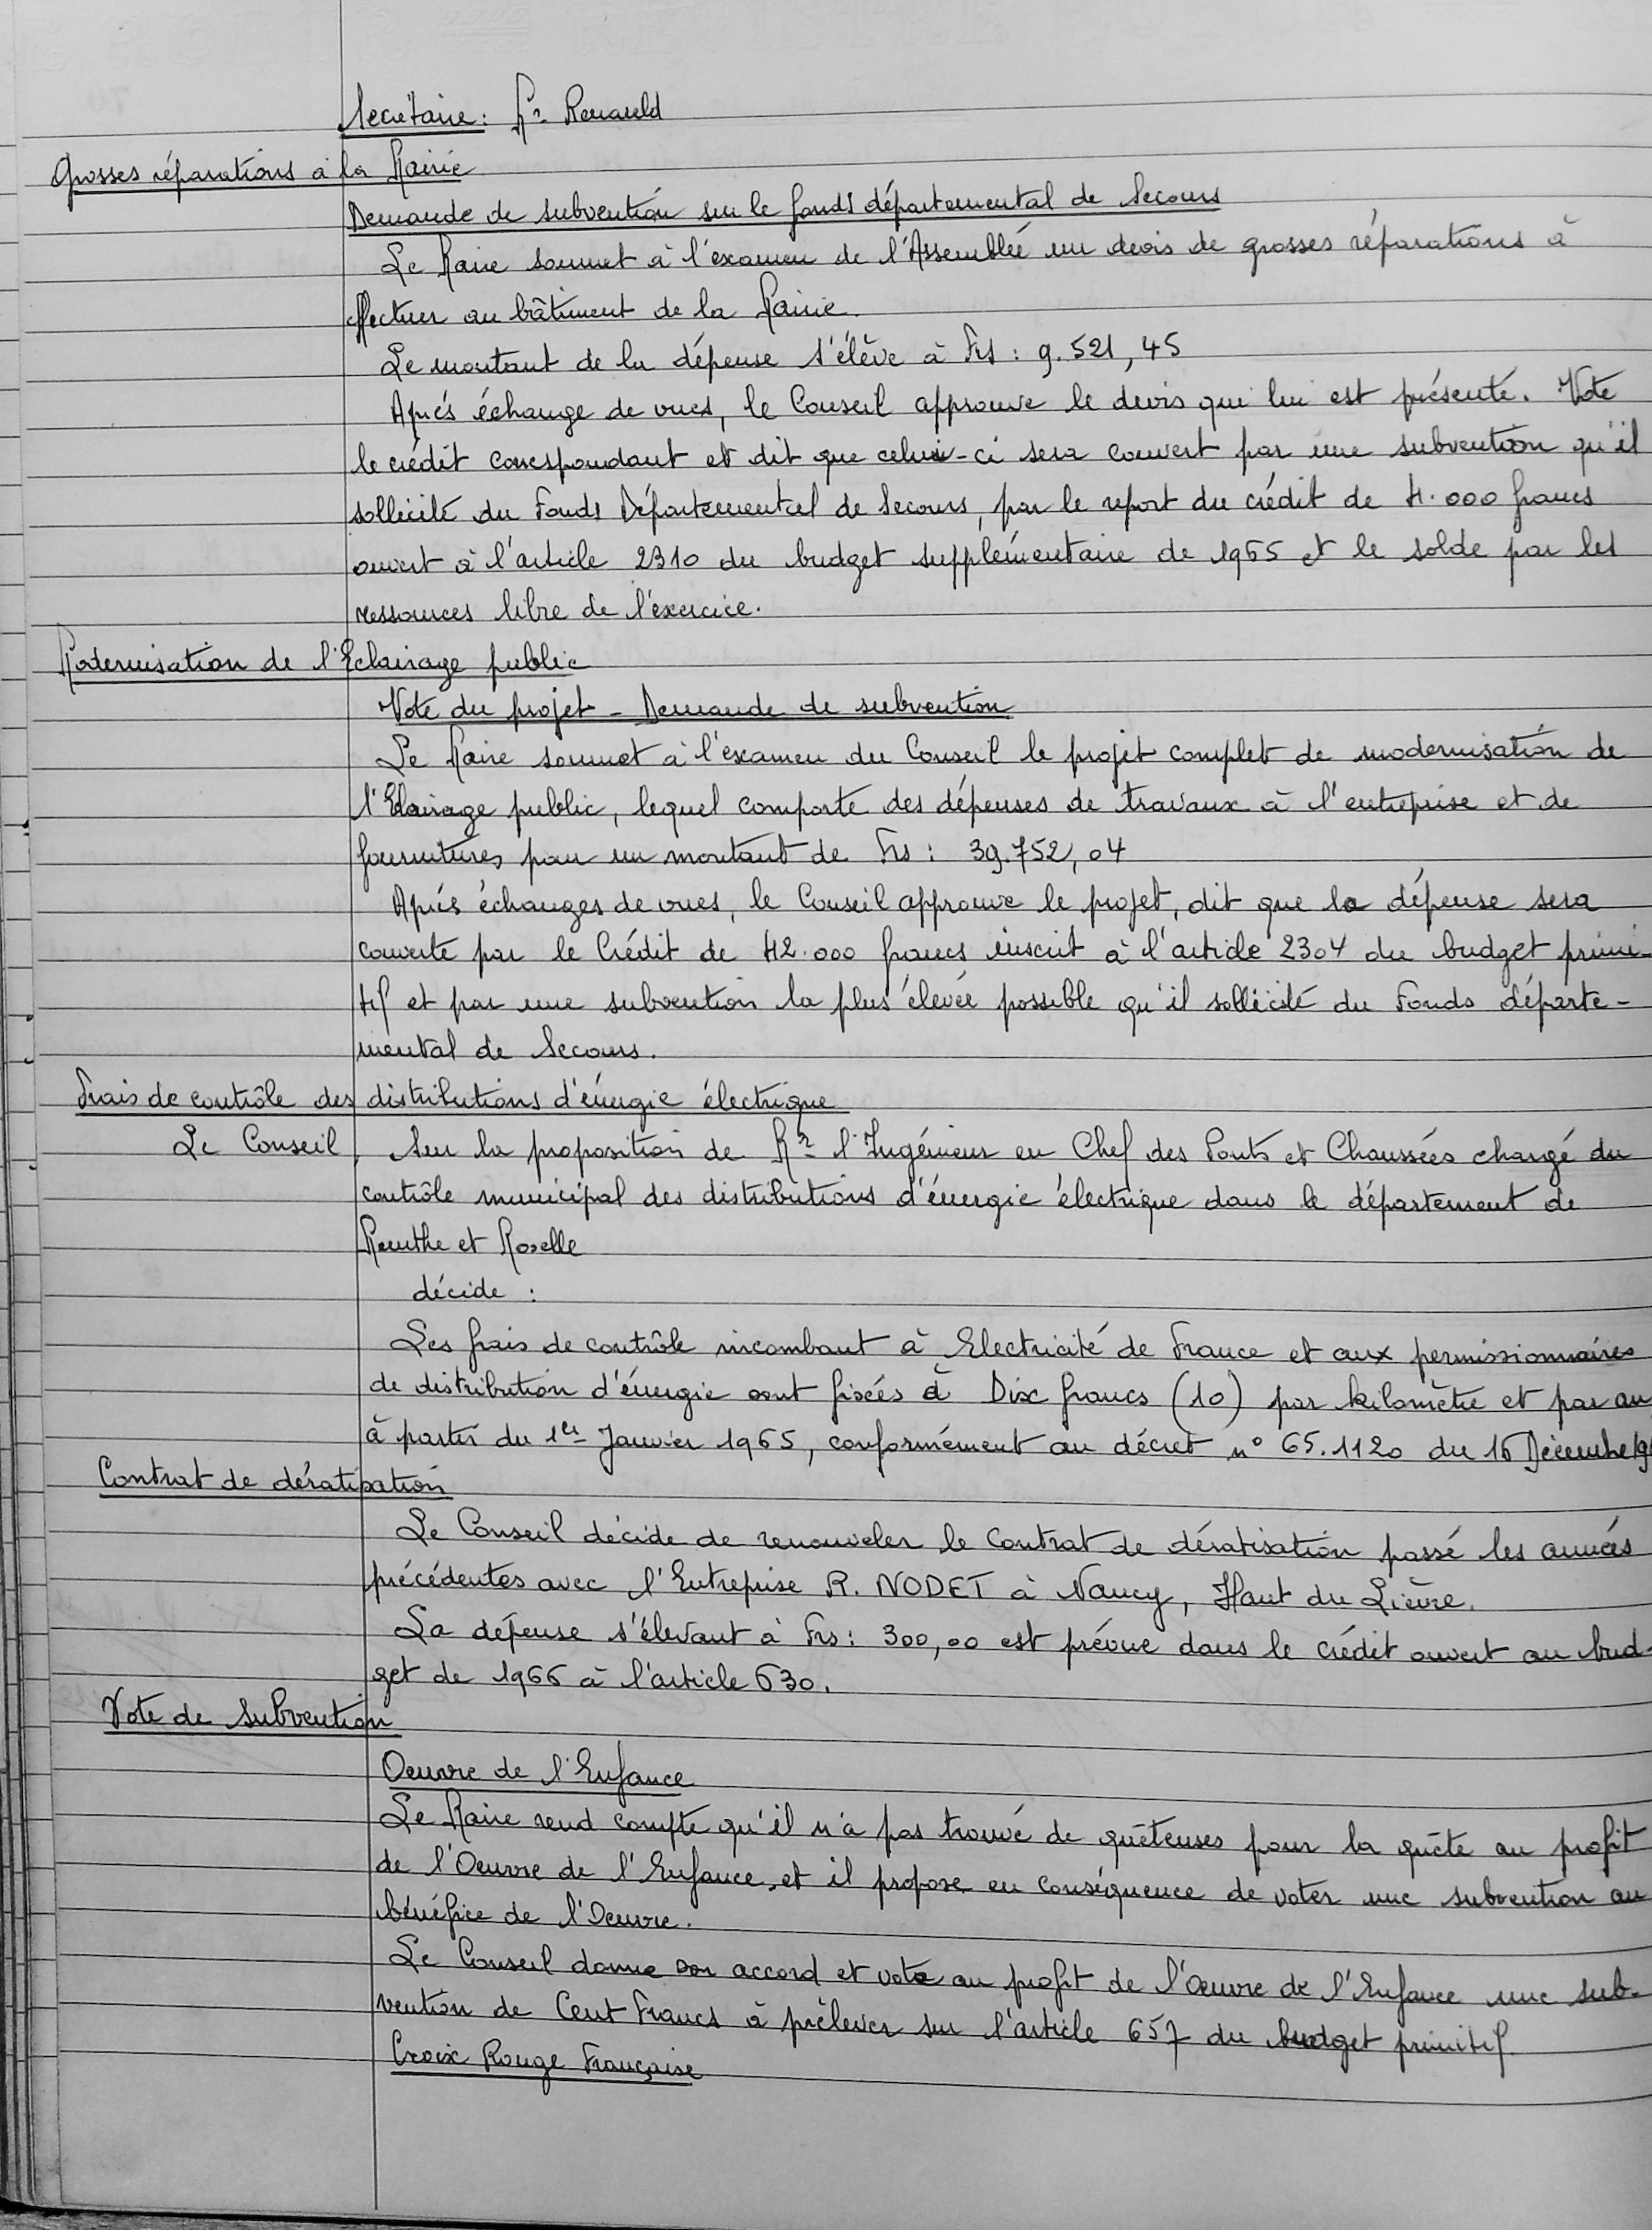 Secrétaire : Mr Renauld
Grosses réparations à la Mairie
Demande de subvention sur le fonds départemental de Secours
Le Maire soumet à l'examen de l'Assemblée un devis de grosses réparations à
effectuer au bâtiment de la Mairie.
Le montant de la dépense s'élève à Frs : 9.521,45
Après échange de vues, le Conseil approuve le devis qui lui est présenté. Vote
le crédit correspondant et dit que celui-ci sera couvert par une subvention qu'il
sollicite du Fonds Départementel de Secours, par le report du crédit de 4.000 francs
ouvert à l'article 2310 du budget supplémentaire de 1965 et le solde par les
ressources libre de l'exercice.
Modernisation de l'Eclairage public
Vote du projet - Demande de subvention
Le Maire soumet à l'examen du Conseil le projet complet de modernisation de
l'Eclairage public, lequel comporte des dépenses de travaux à l'entreprise et de
fournitures pour un montant de Frs : 39.752,04
Après échanges de vues, le Conseil approuve le projet, dit que la dépense sera
couverte par le Crédit de 42.000 francs inscrit à l'article 2304 du budget primi-
tif et par une subvention la plus élevée possible qu'il sollicite du Fonds départe-
mental de Secours.
Frais de contrôle des distributions d'énergie électrique
Le Conseil, Sur la proposition de Mr l'Ingénieur en Chef des Ponts et Chaussées chargé du
contrôle municipal des distributions d'énergie électrique dans le département de
Meurthe et Moselle
décide :
Les frais de contrôle incombant à Electricité de France et aux permissionnaires
de distribution d'énergie sont fixées à Dix francs (10) par kilomètre et par an
à partir du 1er Janvier 1965, conformément au décret n° 65.1120 du 16 Décembre 19
Contrat de dératisation
Le Conseil décide de renouveler le Contrat de dératisation passé les années
précédentes avec l'Entreprise R. NODET à Nancy, Haut du Lièvre.
La dépense s'élevant à Frs : 300,00 est prévue dans le crédit ouvert au bud-
get de 1966 à l'article 630.
Vote de Subvention
Oeuvre de l'Enfance
Le Maire rend compte qu'il n'a pas trouvé de quêteuses pour la quête au profit
de l'Oeuvre de l'Enfance, et il propose en conséquence de voter une subvention au
bénéfice de l'Oeuvre.
Le Conseil donne son accord et vote au profit de l'Oeuvre de l'Enfance une sub-
vention de Cent Francs à prélever sur l'article 657 du budget primitif.
Croix Rouge Française